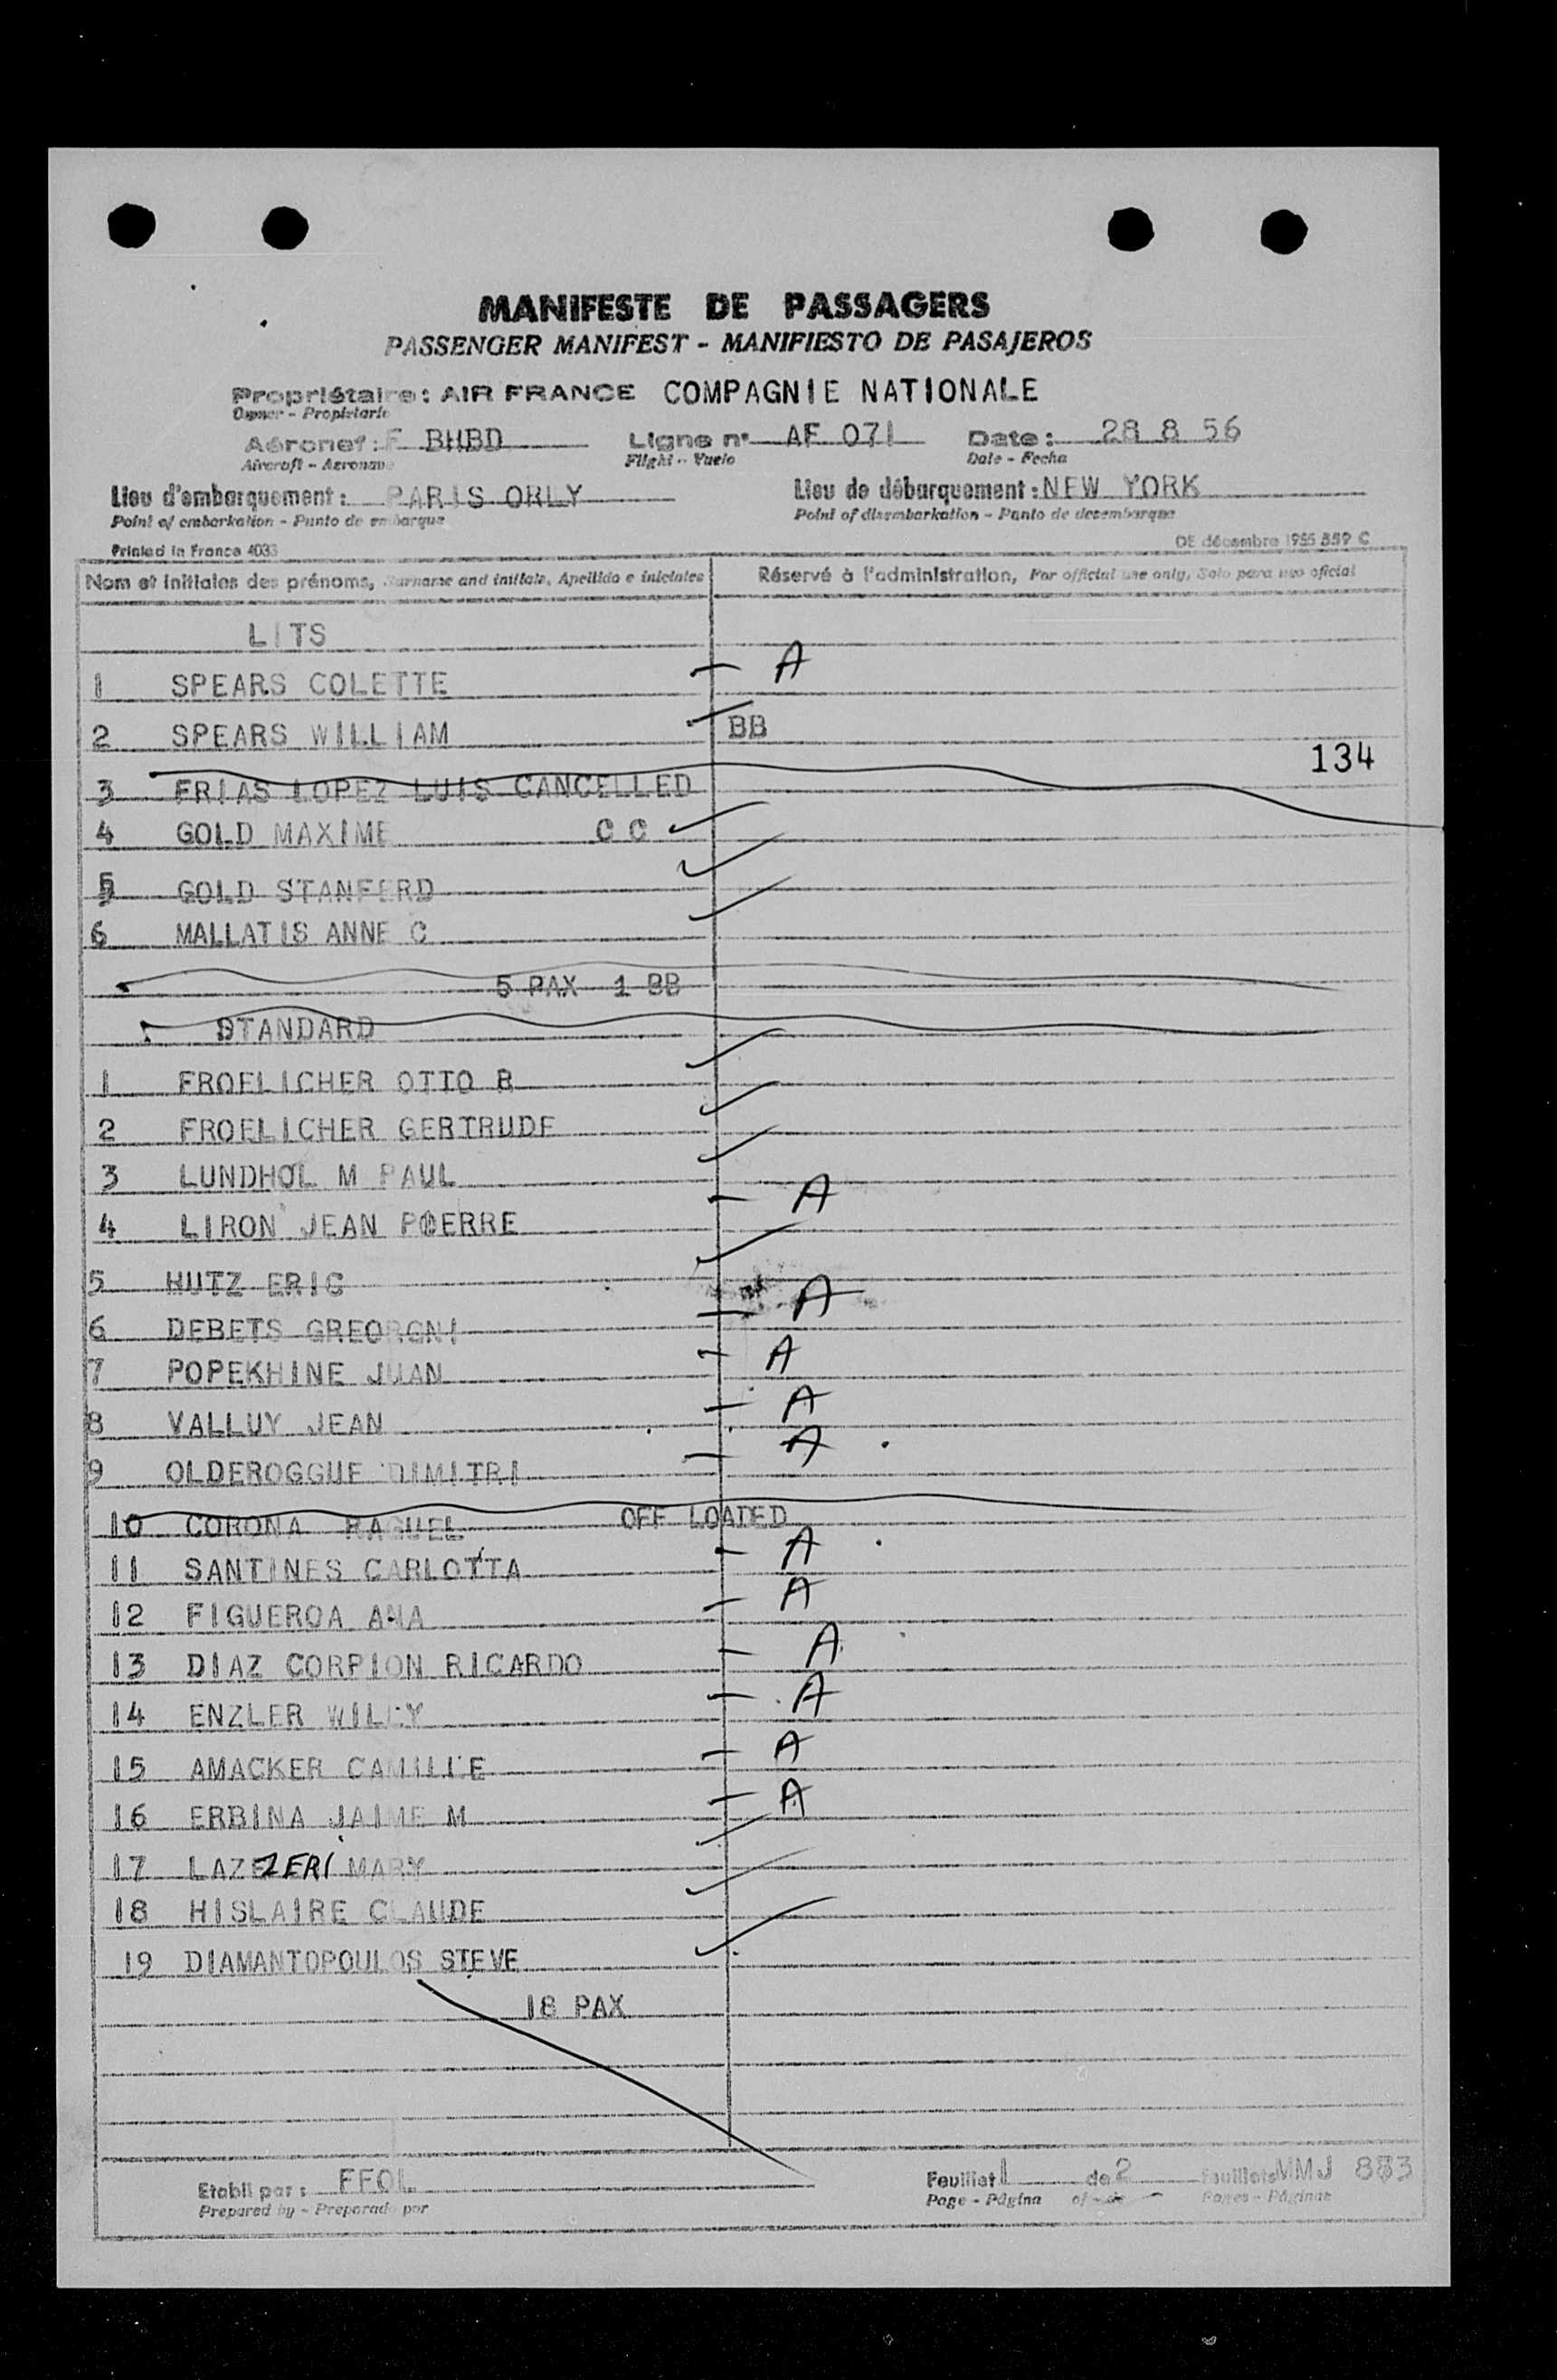 MANIFESTE DE PASSAGERS
PASSENGER MANIFEST - MANIFIESTO DE PASAJEROS
Propriétaire : AIR FRANCE COMPAGNIE NATIONALE
Owner - Propietario
Aéronef : F BHBD Ligne n° AF 071 Date : 28 8 56
Aircraft - Aeronave Flight - Vuelo Date - Fecha
Lieu d'embarquement : PARIS ORLY Lieu de débarquement : NEW YORK
Point of embarkation - Punto de embarque Point of disembarkation - Punto de desembarque
Printed in France 4033 DE décembre 1955 359 C
Nom et initiales des prénoms, Surname and initials, Apellido e iniciales Réservé à l'administration, For official use only, Solo para uso oficial
LITS
1 SPEARS COLETTE – A
2 SPEARS WILLIAM BB
134
3 FRIAS LOPEZ LUIS CANCELLED
4 GOLD MAXIME C C ✓
5 GOLD STANFERD ✓
6 MALLATIS ANNE C ✓
5 PAX 1 BB
STANDARD
1 FROELICHER OTTO R ✓
2 FROELICHER GERTRUDE ✓
3 LUNDHOL M PAUL ✓
4 LIRON JEAN POERRE – A
5 HUTZ ERIC ✓
6 DEBETS – A
7 POPEKHINE JUAN – A
8 VALLUY JEAN – A
9 OLDEROGGUE DIMITRI – A
10 CORONA RAQUEL OFF LOADED
11 SANTINES CARLOTTA – A
12 FIGUEROA ANA – A
13 DIAZ CORPION RICARDO – A
14 ENZLER WILLY – A
15 AMACKER CAMILLE – A
16 ERBINA JAIME M – A
17 LAZEZERI MARY ✓
18 HISLAIRE CLAUDE ✓
19 DIAMANTOPOULOS STEVE ✓
18 PAX
Etabli par : FFOL Feuillet 1 de 2 feuillets MMJ 883
Prepared by - Preparado por Page - Página of - de Pages - Páginas